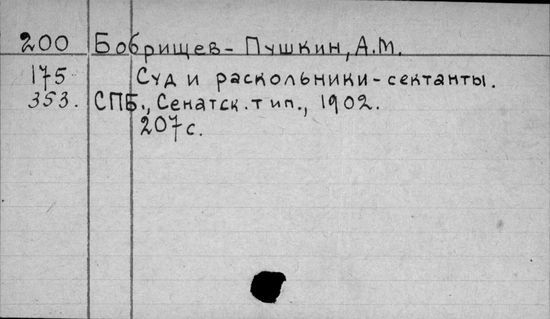 200 Бобрищев-Пушкин, А.М.
175 Суд и раскольники-сектанты.
353. СПБ., Сенатск. тип., 1902.
207 с.